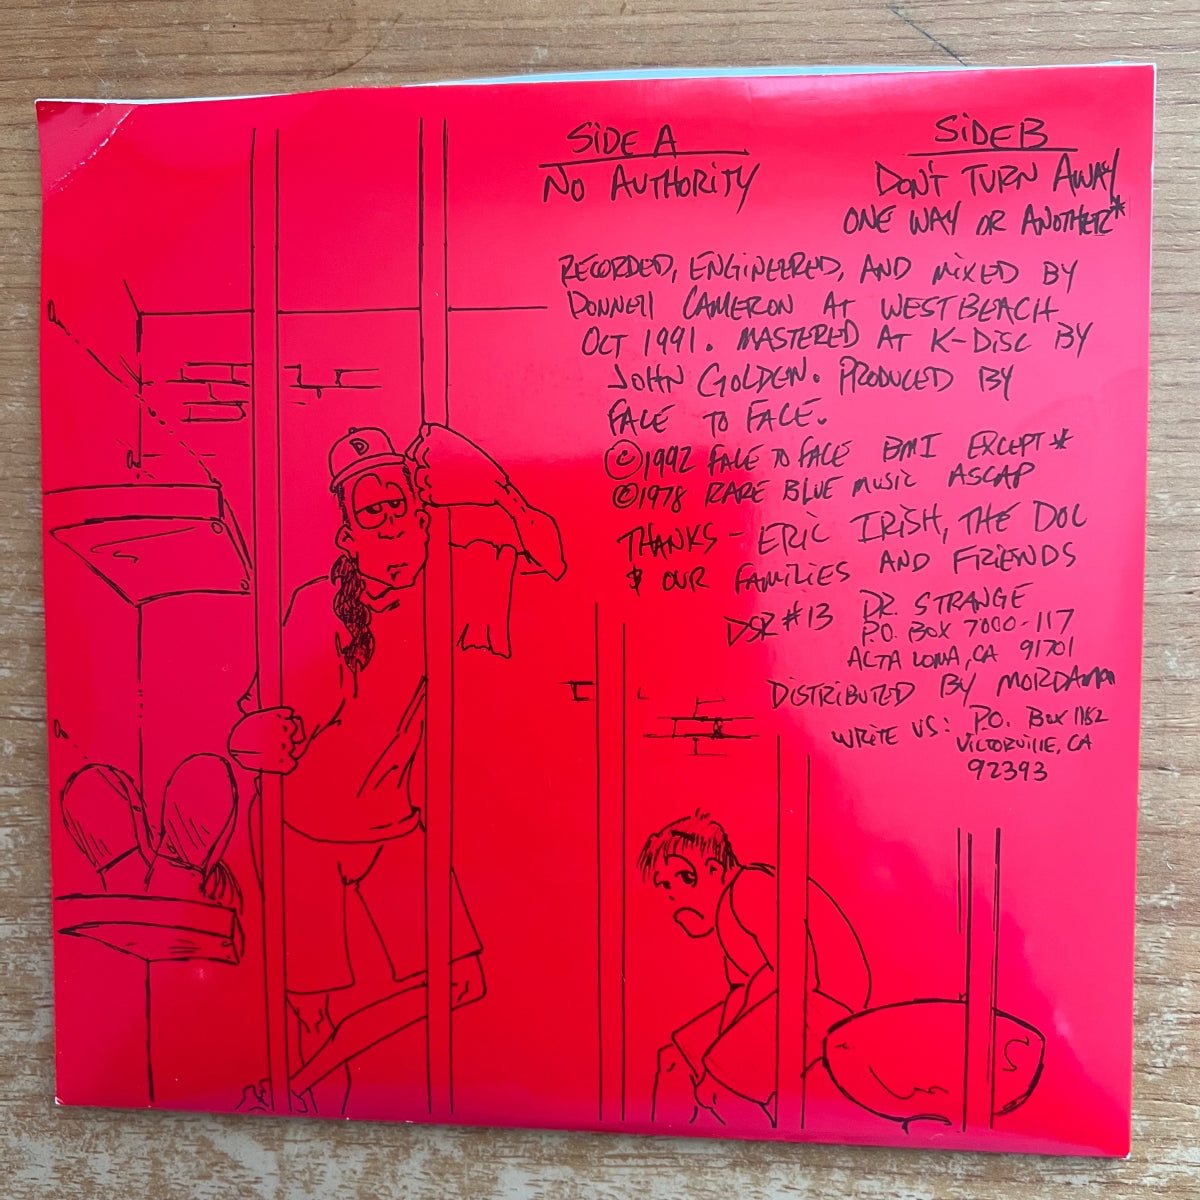 SIDE A
NO AUTHORITY
SIDE B
DON'T TURN AWAY
ONE WAY OR ANOTHER*
RECORDED, ENGINEERED, AND MIXED BY
DONNELL CAMERON AT WESTBEACH
OCT 1991. MASTERED AT K-DISC BY
JOHN GOLDEN. PRODUCED BY
FACE TO FACE.
©1992 FACE TO FACE BMI EXCEPT*
©1978 RARE BLUE MUSIC ASCAP
THANKS - ERIC IRISH, THE DOC
& OUR FAMILIES AND FRIENDS
DSR #13 DR. STRANGE
P.O. BOX 7000-117
ALTA LOMA, CA 91701
DISTRIBUTED BY MORDAM
WRITE US: P.O. BOX 1182
VICTORVILLE, CA
92393
D